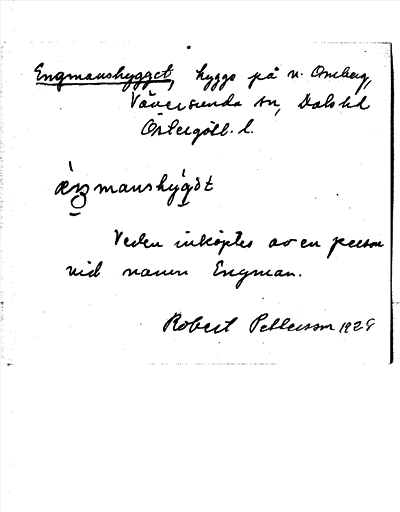 Engmanshygget, hygge på n. Omberg,
Väversunda sn, Dals hd
Östergötl. l.
ä́ŋmanshýgət
Veden inköptes av en person
vid namn Engman.
Robert Pettersson 1928